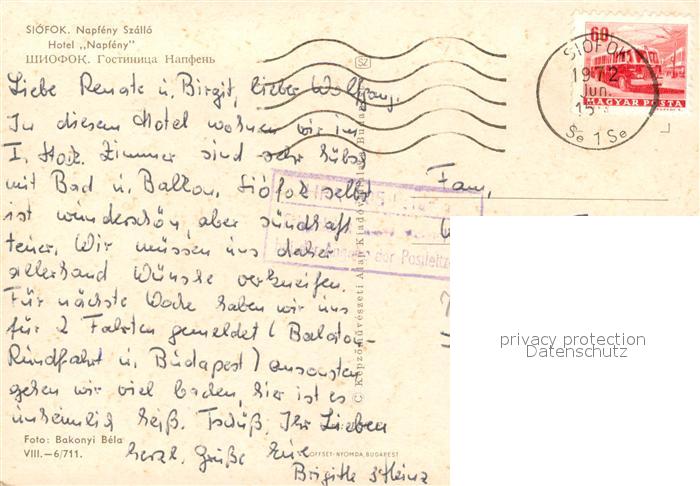 SIÓFOK. Napfény Szálló
Hotel „Napfény"
ШИОФОК. Гостиница Напфень
Liebe Renate u. Birgit, lieber Wolfgang.
In diesem Hotel wohnen wir im
I. Stock. Zimmer sind sehr hübsch
mit Bad u. Balkon. Siófok selbst
ist wunderschön, aber sündhaft
teuer. Wir müssen uns daher
allerhand Wünsche verkneifen.
Für nächste Woche haben wir uns
für 2 Fahrten gemeldet (Balaton-
Rundfahrt u. Budapest) ansonsten
gehen wir viel baden, hier ist es
unheimlich heiß. Tschüß, Ihr Lieben
herzl. Grüße Eure
Brigitte + Heinz
Foto: Bakonyi Béla
VIII.—6/711.
OFFSET-NYOMDA, BUDAPEST
© Képzőművészeti Alap Kiadóvállalata, Budapest
SZ
60
MAGYAR POSTA
SIÓFOK
1972
Jun.
15
Se 1 Se
Fam.
der Postleitz
privacy protection
Datenschutz